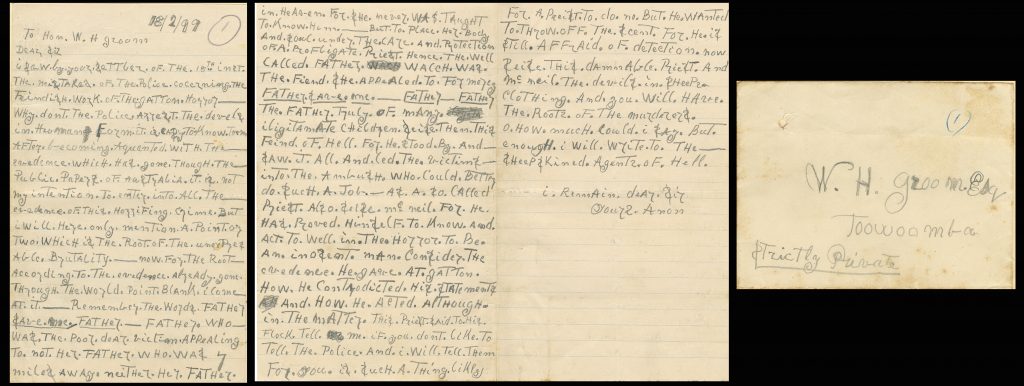 18/2/99
1
To Hon. W. H groom
Dear Sir
i saw by your Letter of The 10th inst
The mistakes of The Police. cocerning. The
Feindish. Work. of The gatton. Horror
Why. dont. The Police Arrest. The devels
in. Hewmang Form it is easy to Know. Them
After. becoming. Aquanted. With. The
evedence. Which. Has. gone. Though. The
Public. Papers of Australia. it. is. not
my intention. To. enter. into. All. The
evedence. of This. Horrifing. Crime. But
i Will. Here. only. mention. A. Point or
Two. Which is The. Root. of. The. unexpres
Able. Brutality — now. For. The. Root
According. To. The. evedence. Already. gone.
Through. The. World. Point Blank. i. come
at. it — Remember. The. Words. Father
Save. me. Father — Father. Who
Was. The. Poor. dear. victem. Appealing
To. not. Her. Father. Who. Was 7
miles Away. neither. Her. Father.
in. Heaven. For. She. never. Was. Taught
To Know. Him — But. To. Place. Her. Body
And. Soul. under. The. care. And. Protection
of A. Profligate. Priest. Hence. The. Well
Called. Father. Walch. Was
The. Friend. She. Appealed. To. For. mercy
Father. Save. me. — Father — Father
The. Father. Truly. of. many.
iligitamate children. Seize. Them. This
Feind. of Hell. For. He. Stood. By. And
Saw. it. All. And. Led. The. victims
into. The Ambush. Who. could. Better
do. Such. A. Job — As. A. so. called
Priest. Also. Seize. mc neil. For. He.
Has. Proved. Himself. To. Know. And.
Act. To. Well. in. The. Horror. To. Be.
An. inosent. man. Consider. The
evedence. He. gave. At. gatton.
How. He. Controdicted. His. Statements
And. How. He. Acted. Although
in. The. matter. This. Priest. said. To. His
Flock. Tell. me. if. you. dont. Like. To
Tell. The. Police. And. i. Will. Tell. Them
For. you. is. Such. A. Thing. Likly
For. A. Priest. To. do. no. But. He. Wanted
To. Throw. off. The. Scent. For. He. is
Still. Affraid. of. detection. now
Seize. This. damnable. Priest. And
mc neil. The. devils. in. Sheeps
clothing. And. you. Will. Have.
The. Roots. of The. murderers
o. How. much. Could. i. say. But.
enough. i Will. Write. To. The —
Sheep. Skined. Agents. of. Hell.
i. Remain. dear. Sir
Yours. Anon
1
W. H. groom. Esq
Toowoomba
Strictly Private